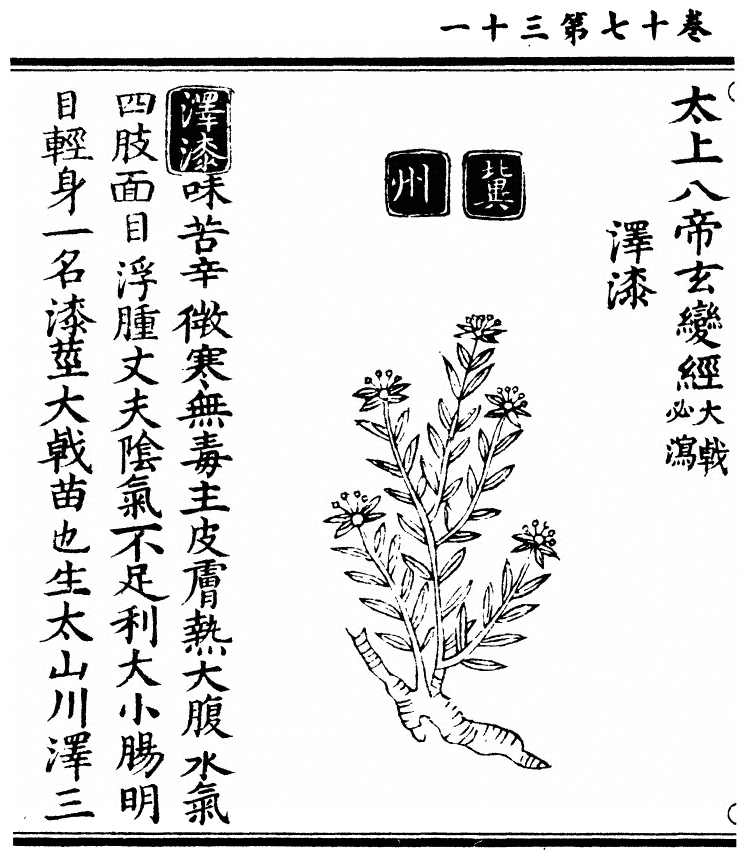 卷十七第三十一
太上八帝玄變經大戟必瀉
澤漆
冀州
澤漆味苦辛微寒無毒主皮膚熱大腹水氣
四肢面目浮腫丈夫陰氣不足利大小腸明
目輕身一名漆莖大戟苗也生太山川澤三